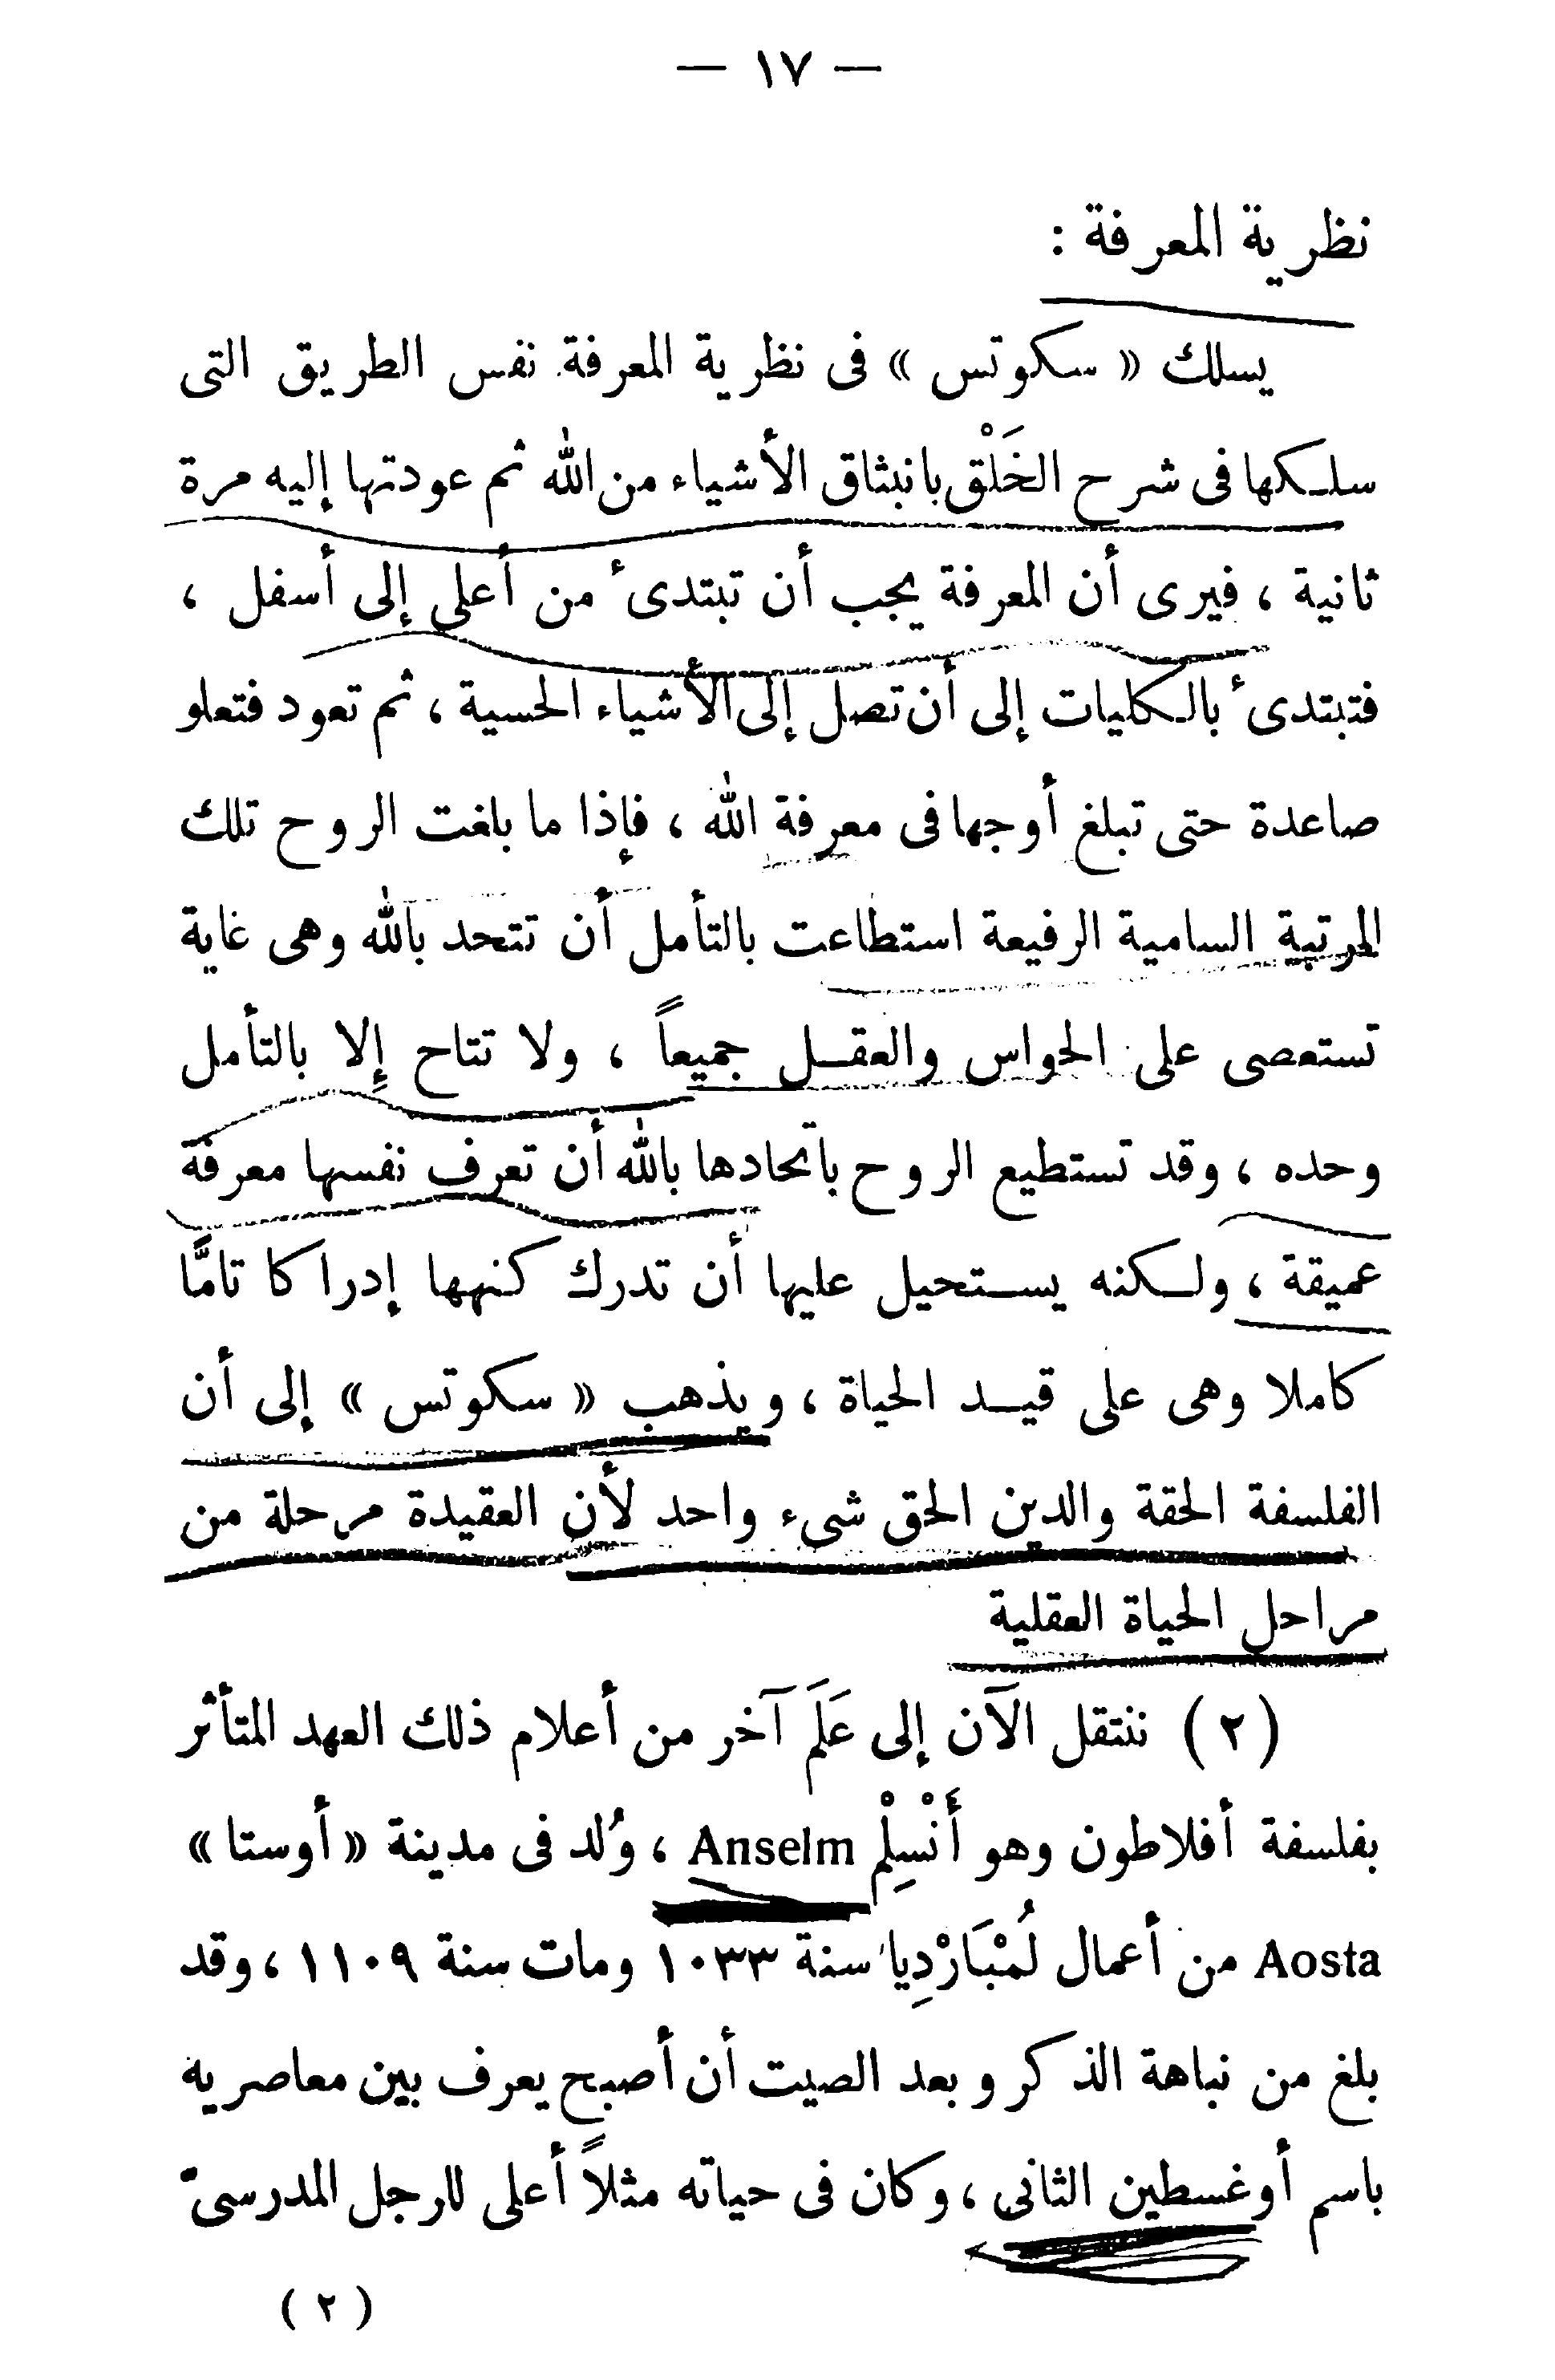 — ١٧ —
نظرية المعرفة :
يسلك « سكوتس » فى نظرية المعرفة نفس الطريق التى
سلكها فى شرح الخَلْق بانبثاق الأشياء من الله ثم عودتها إليه مرة
ثانية ، فيرى أن المعرفة يجب أن تبتدىء من أعلى إلى أسفل ،
فتبتدىء بالكليات إلى أن تصل إلى الأشياء الحسية ، ثم تعود فتعلو
صاعدة حتى تبلغ أوجها فى معرفة الله ، فإذا ما بلغت الروح تلك
المرتبة السامية الرفيعة استطاعت بالتأمل أن تتحد بالله وهى غاية
تستعصى على الحواس والعقل جميعاً ، ولا تتاح إلا بالتأمل
وحده ، وقد تستطيع الروح باتحادها بالله أن تعرف نفسها معرفة
عميقة ، ولكنه يستحيل عليها أن تدرك كنهها إدراكا تامًّا
كاملا وهى على قيد الحياة ، ويذهب « سكوتس » إلى أن
الفلسفة الحقة والدين الحق شىء واحد لأن العقيدة مرحلة من
مراحل الحياة العقلية
(٢) ننتقل الآن إلى عَلَم آخر من أعلام ذلك العهد المتأثر
بفلسفة أفلاطون وهو أَنْسِلْم Anselm ، وُلد فى مدينة « أوستا »
Aosta من أعمال لُمْبَارْدِيا سنة ١٠٣٣ ومات سنة ١١٠٩ ، وقد
بلغ من نباهة الذكر وبعد الصيت أن أصبح يعرف بين معاصريه
باسم أوغسطين الثانى ، وكان فى حياته مثلاً أعلى للرجل المدرسىّ
(٢)